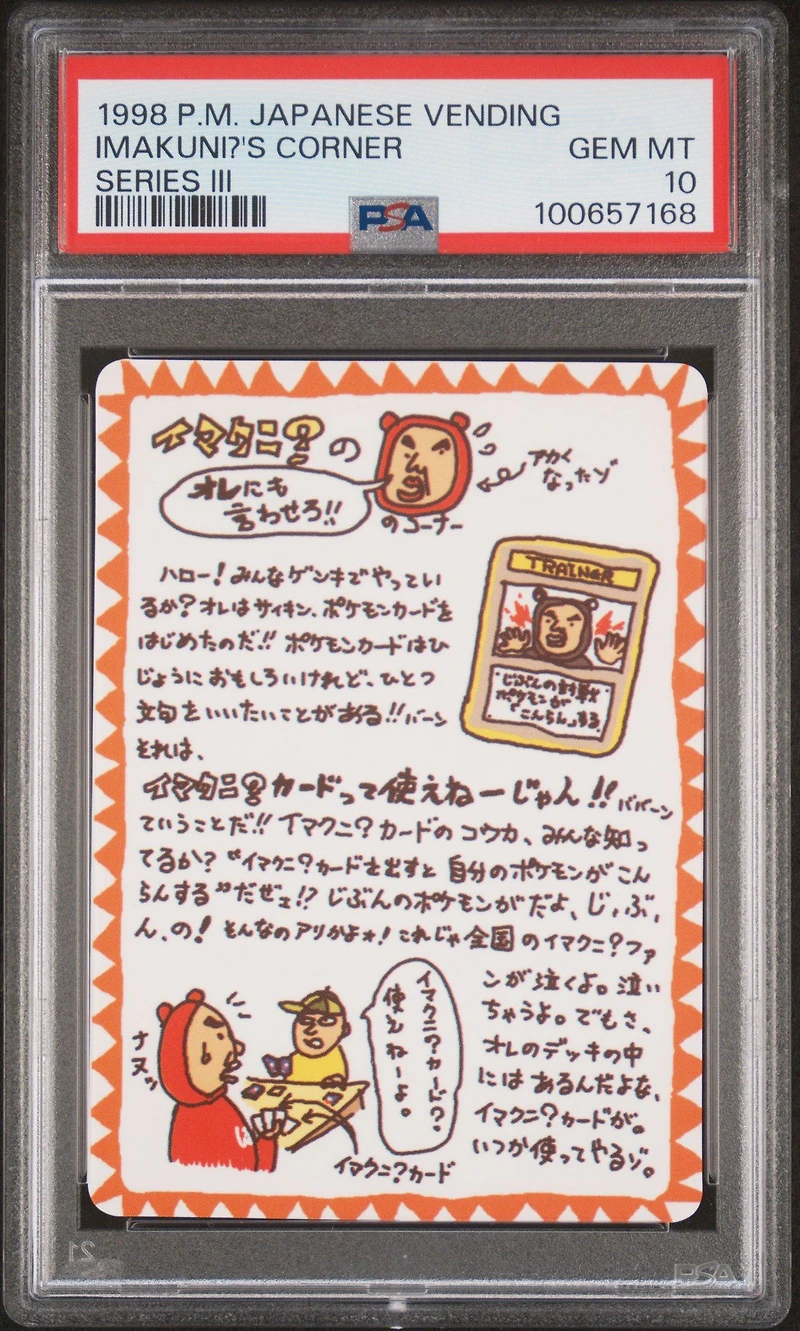 1998 P.M. JAPANESE VENDING
IMAKUNI?'S CORNER GEM MT
SERIES III 10
PSA 100657168
イマクニ?の
オレにも
言わせろ!!
のコーナー
アカく
なったゾ
ハロー!みんなゲンキでやってい
るか?オレはサイキン、ポケモンカードを
はじめたのだ!!ポケモンカードはひ
じょうにおもしろいけれど、ひとつ
文句をいいたいことがある!!バーン
それは、
TRAINER
じぶんの対戦
ポケモンが
「こんらん」する。
イマクニ?カードって使えねーじゃん!!ババーン
ていうことだ!!イマクニ?カードのコウカ、みんな知っ
てるか?“イマクニ?カードを出すと自分のポケモンがこん
らんする”だぜェ!?じぶんのポケモンがだよ、じ、ぶ、
ん、の!そんなのアリかよォ!これじゃ全国のイマクニ?ファ
ンが泣くよ。泣い
ちゃうよ。でもさ、
オレのデッキの中
にはあるんだよな、
イマクニ?カードが。
いつか使ってやるゾ。
ナヌッ
イマクニ?カード?
使えねーよ。
イマクニ?カード
PSA